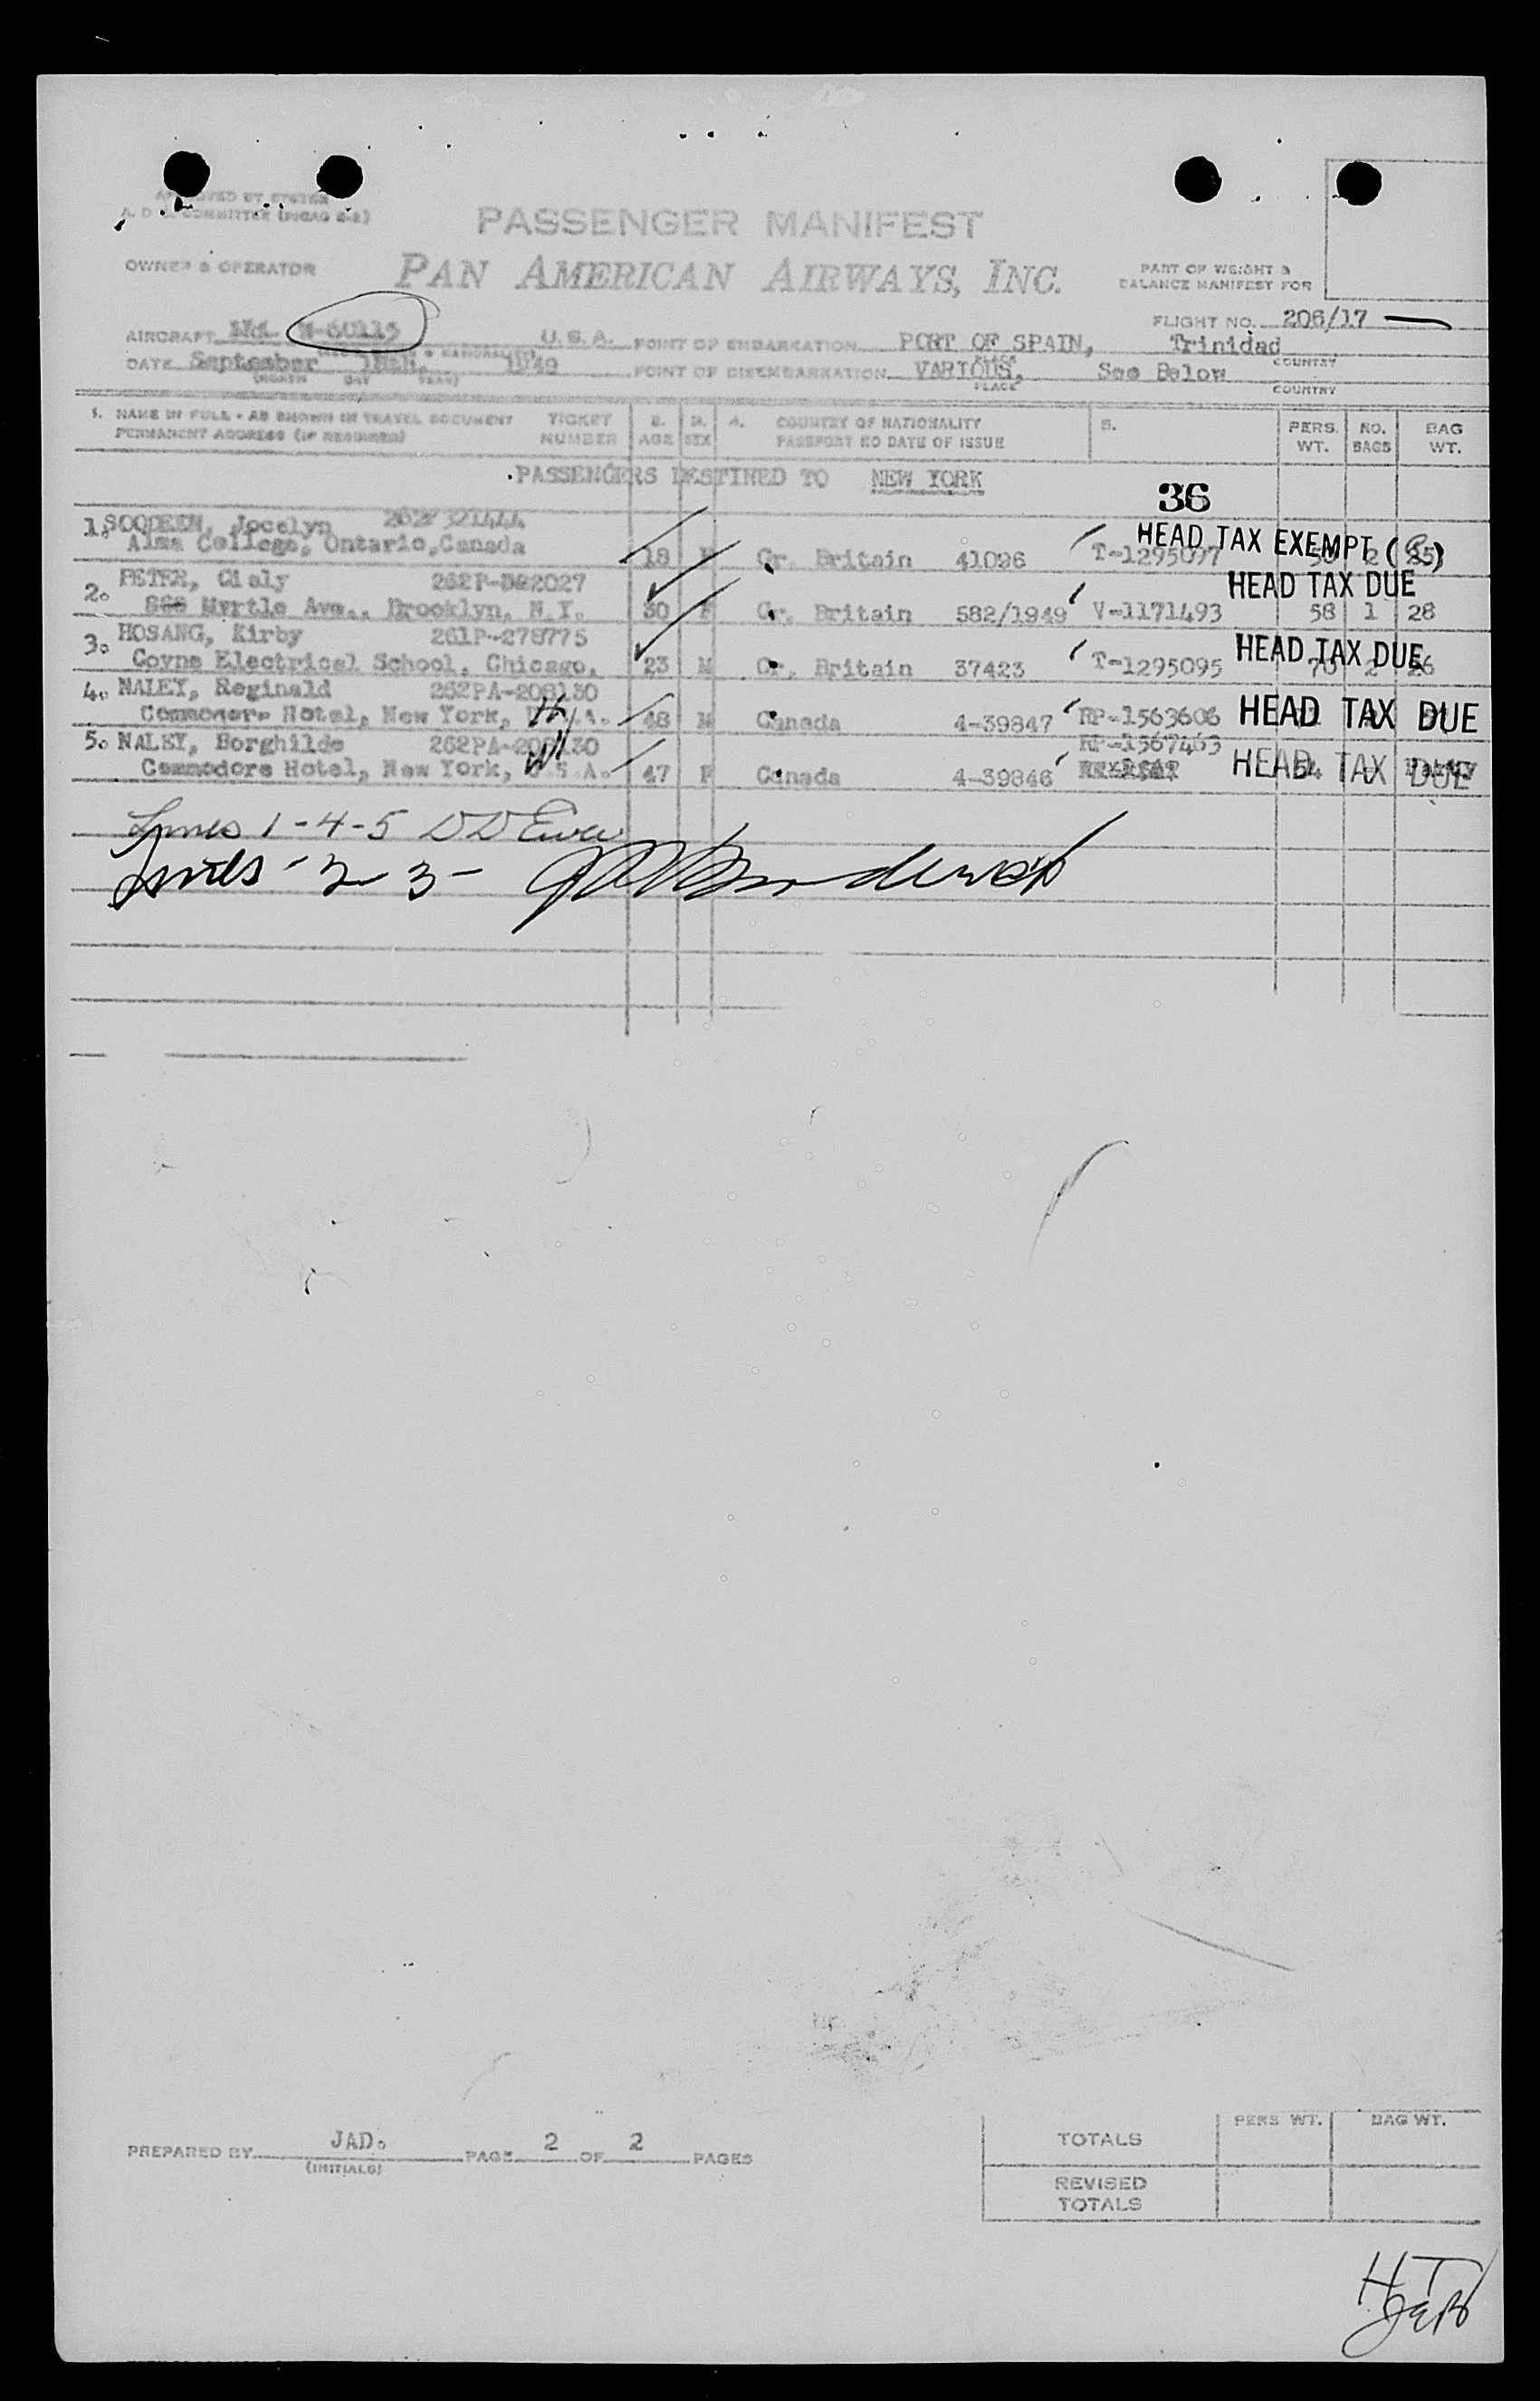 A. D. COMMITTEE
PASSENGER MANIFEST
OWNER & OPERATOR
PAN AMERICAN AIRWAYS, INC.
PART OF WEIGHT &
BALANCE MANIFEST FOR
FLIGHT NO. 206/17
AIRCRAFT N-60115 U.S.A. POINT OF EMBARKATION PORT OF SPAIN, Trinidad
PLACE COUNTRY
DATE September 1949 POINT OF DISEMBARKATION VARIOUS, See Below
(MONTH DAY YEAR) PLACE COUNTRY
1. NAME IN FULL - AS SHOWN IN TRAVEL DOCUMENT TICKET 2. 3. 4. COUNTRY OF NATIONALITY 5. PERS. NO. BAG
PERMANENT ADDRESS (IF REQUIRED) NUMBER AGE SEX PASSPORT NO DATE OF ISSUE WT. BAGS WT.
PASSENGERS DESTINED TO NEW YORK
36
1. SOODEEN, Jocelyn
HEAD TAX EXEMPT
Alma College, Ontario, Canada 18 F Gr. Britain 41096 T-1295097 2
2. PETER, Cisly HEAD TAX DUE
Myrtle Ave., Brooklyn, N.Y. 30 F Gr. Britain 582/1949 V-1171493 58 1 28
3. HOSANG, Kirby 261P-278775 HEAD TAX DUE
Coyne Electrical School, Chicago, 23 M Gr. Britain 37423 T-1295095 70 2 26
4. NALEY, Reginald 262PA-208130
Commodore Hotel, New York, U.S.A. 48 M Canada 4-39847 RP-1563606 HEAD TAX DUE
5. NALEY, Borghilde 262PA-208130 RP-1567463
Commodore Hotel, New York, U.S.A. 47 F Canada 4-39846 HEAD TAX DUE
Lines 1-4-5
Lines - 2 3 -
PREPARED BY JAD. PAGE 2 OF 2 PAGES
(INITIALS)
PERS WT. BAG WT.
TOTALS
REVISED
TOTALS
HT